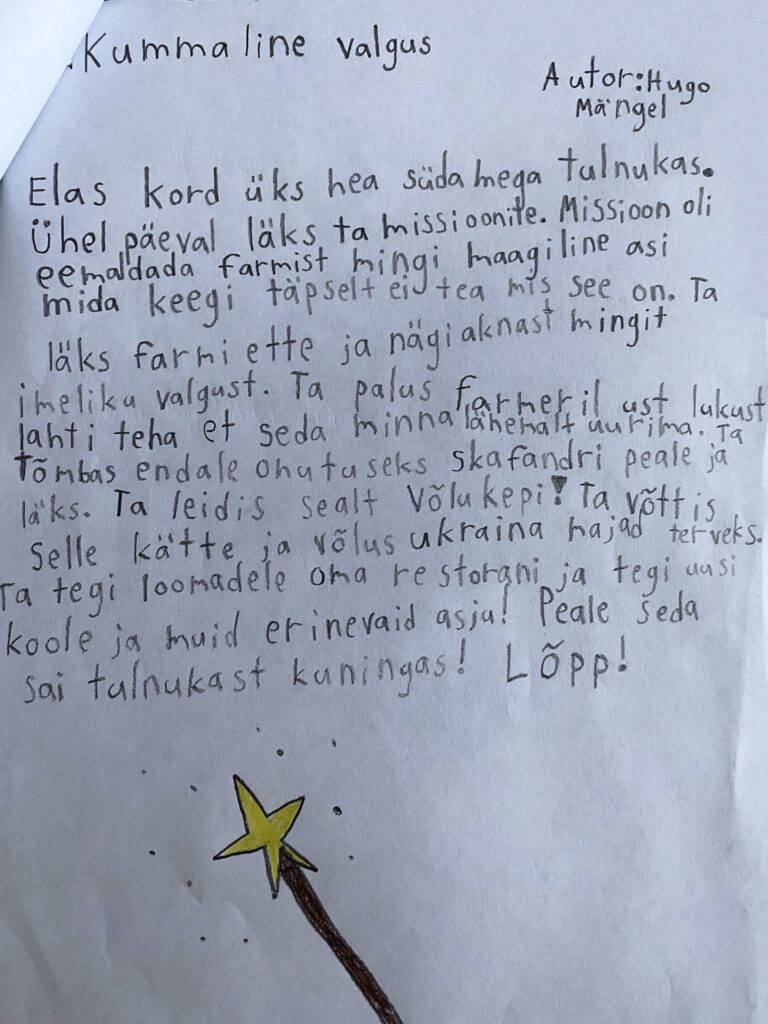 Kummaline valgus
Autor: Hugo
Mängel
Elas kord üks hea südamega tulnukas.
Ühel päeval läks ta missioonile. Missioon oli
eemaldada farmist mingi maagiline asi
mida keegi täpselt ei tea mis see on. Ta
läks farmi ette ja nägi aknast mingit
imeliku valgust. Ta palus farmeril ust lukust
lahti teha et seda minna lähemalt uurima. Ta
Tõmbas endale ohutuseks skafandri peale ja
läks. Ta leidis sealt Võlukepi! Ta võttis
selle kätte ja võlus ukraina majad terveks.
Ta tegi loomadele oma restorani ja tegi uusi
koole ja muid erinevaid asju! Peale seda
sai tulnukast kuningas! Lõpp!